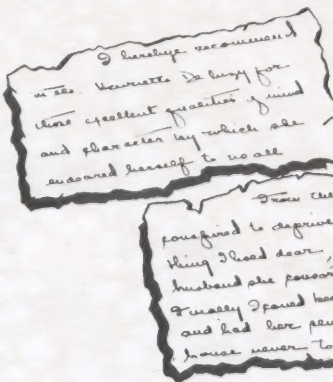 I herebye recommend
Mlle. Henriette De luzy for
those excellent qualities of mind
and character by which she
endeared herself to us all
From the
conspired to deprive
thing I hold dear,
husband she
Finally I could
and had her
house never to